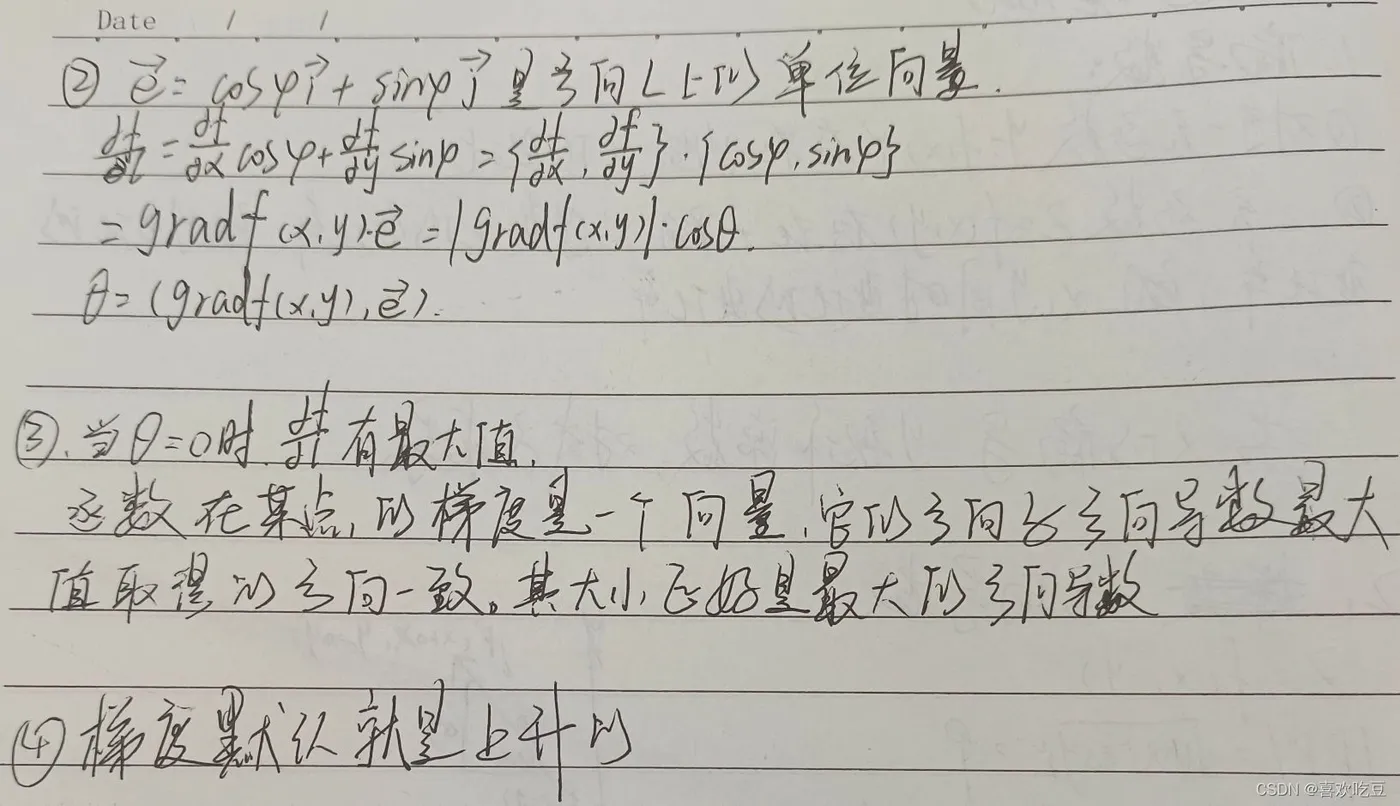 Date / /
② e⃗ = cosφi⃗ + sinφj⃗ 是方向L上的单位向量.
∂f/∂l = ∂f/∂x cosφ + ∂f/∂y sinφ = {∂f/∂x, ∂f/∂y}·{cosφ, sinφ}
= gradf(x,y)·e⃗ = |gradf(x,y)|·cosθ.
θ = (gradf(x,y), e⃗).
③. 当θ=0时. ∂f/∂l 有最大值.
函数在某点的梯度是一个向量,它的方向与方向导数最大
值取得的方向一致。其大小正好是最大的方向导数
④ 梯度默认就是上升的
CSDN @喜欢吃豆